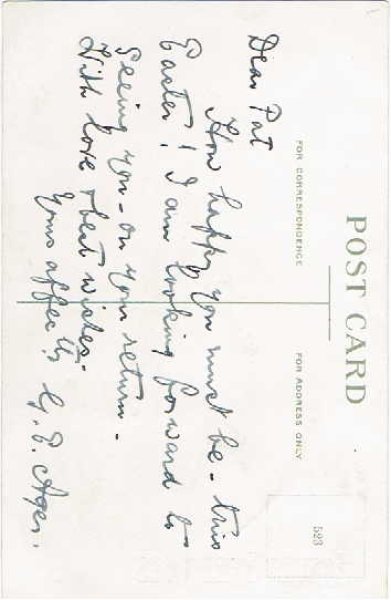 POST CARD
FOR CORRESPONDENCE
FOR ADDRESS ONLY
523
Dear Pat
How happy you must be - this
Easter! I am looking forward to
Seeing you - on your return -
With love & best wishes -
Yours affectly
G. E.